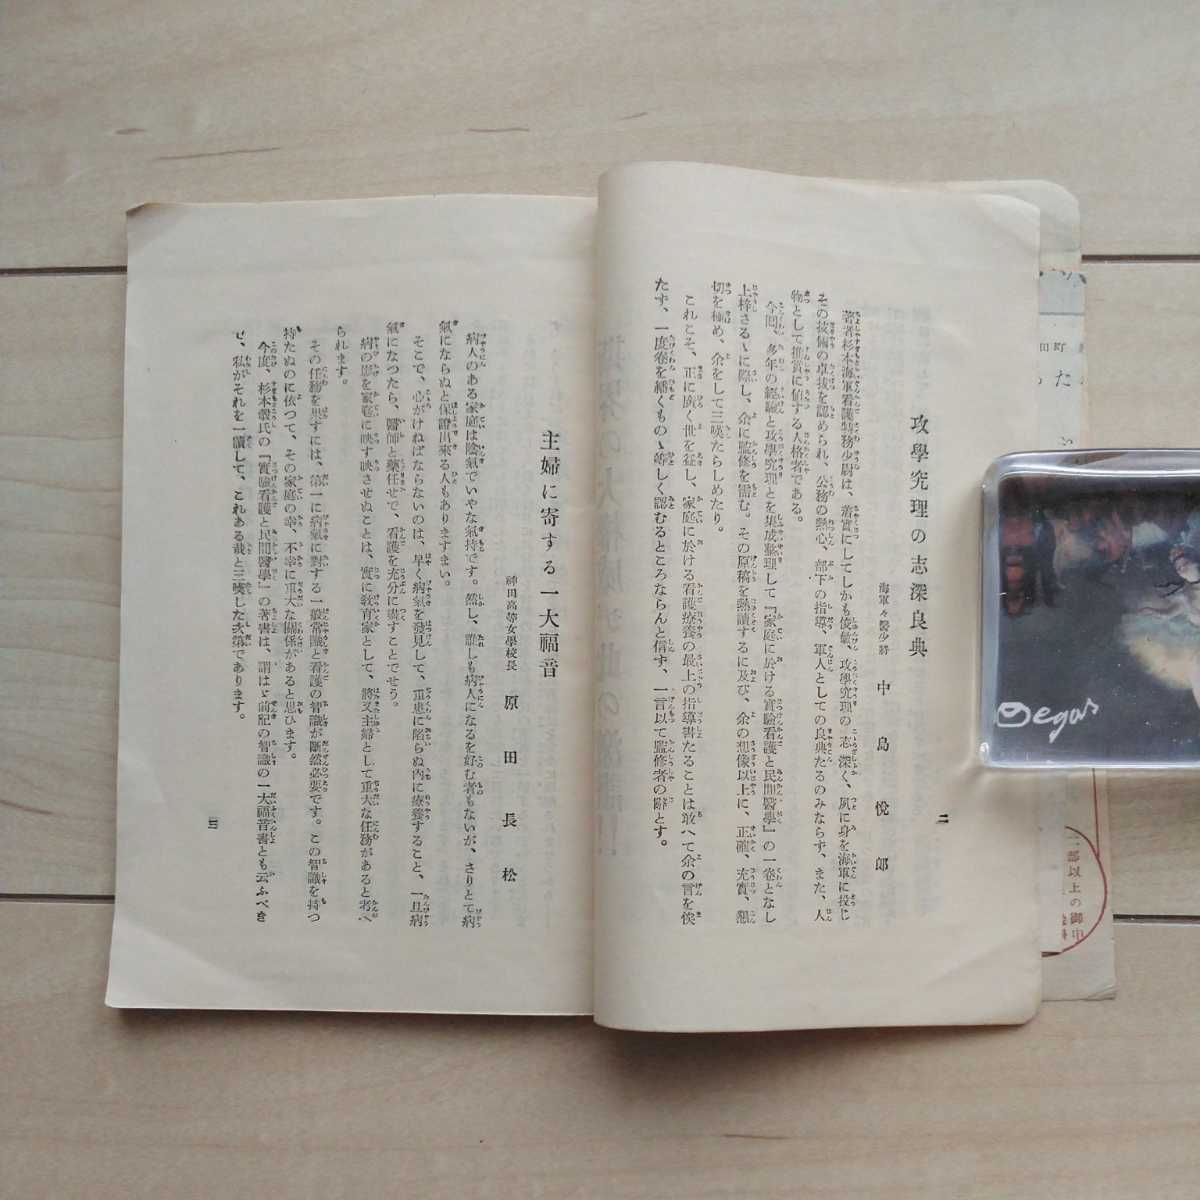 攻學究理の志深良典
海軍々醫少將 中島悅郎
著者杉本海軍看護特務少尉は、着實にしてしかも俊敏、攻學究理の志深く、夙に身を海軍に投じ
その技術の卓拔を認められ、公務の熱心、部下の指導、軍人としての良典たるのみならず、また、人
物として推賞に値する人格者である。
今囘、多年の經驗と攻學究理とを集成整理して『家庭に於ける實驗看護と民間醫學』の一卷となし
上梓さるゝに際し、余に監修を需む。その原稿を熟讀するに及び、余の想像以上に、正確、充實、懇
切を極め、余をして三嘆たらしめたり。
これこそ、正に廣く世を益し、家庭に於ける看護療養の最上の指導書たることは敢へて余の言を俟
たず、一度卷を繙くものゝ等しく認むるところならんと信ず、一言以て監修者の辭とす。
二
主婦に寄する一大福音
神田高等女學校長 原田長松
病人のある家庭は陰氣でいやな氣持です。然し、誰しも病人になるを好む者もないが、さりとて病
氣にならぬと保證出來る人もありますまい。
そこで、心がけねばならないのは、早く病氣を發見して、重患に陷らぬ內に療養すること、一旦病
氣になつたら、醫師と藥任せで、看護を充分に盡すことでせう。
病の影を家卷に映す映させぬことは、實に敎育家として、將又主婦として重大な任務があると考へ
られます。
その任務を果すには、第一に病氣に對する一般常識と看護の智識が斷然必要です。この智識を持つ
持たぬのに依つて、その家庭の幸、不幸に重大な關係があると思ひます。
今度、杉本㲄氏の『實驗看護と民間醫學』の著書は、謂はゞ前記の智識の一大福音書とも云ふべき
ぜ、私がそれを一讀して、これある哉と三嘆した次第であります。
三
Degas
町田
一部以上の御申